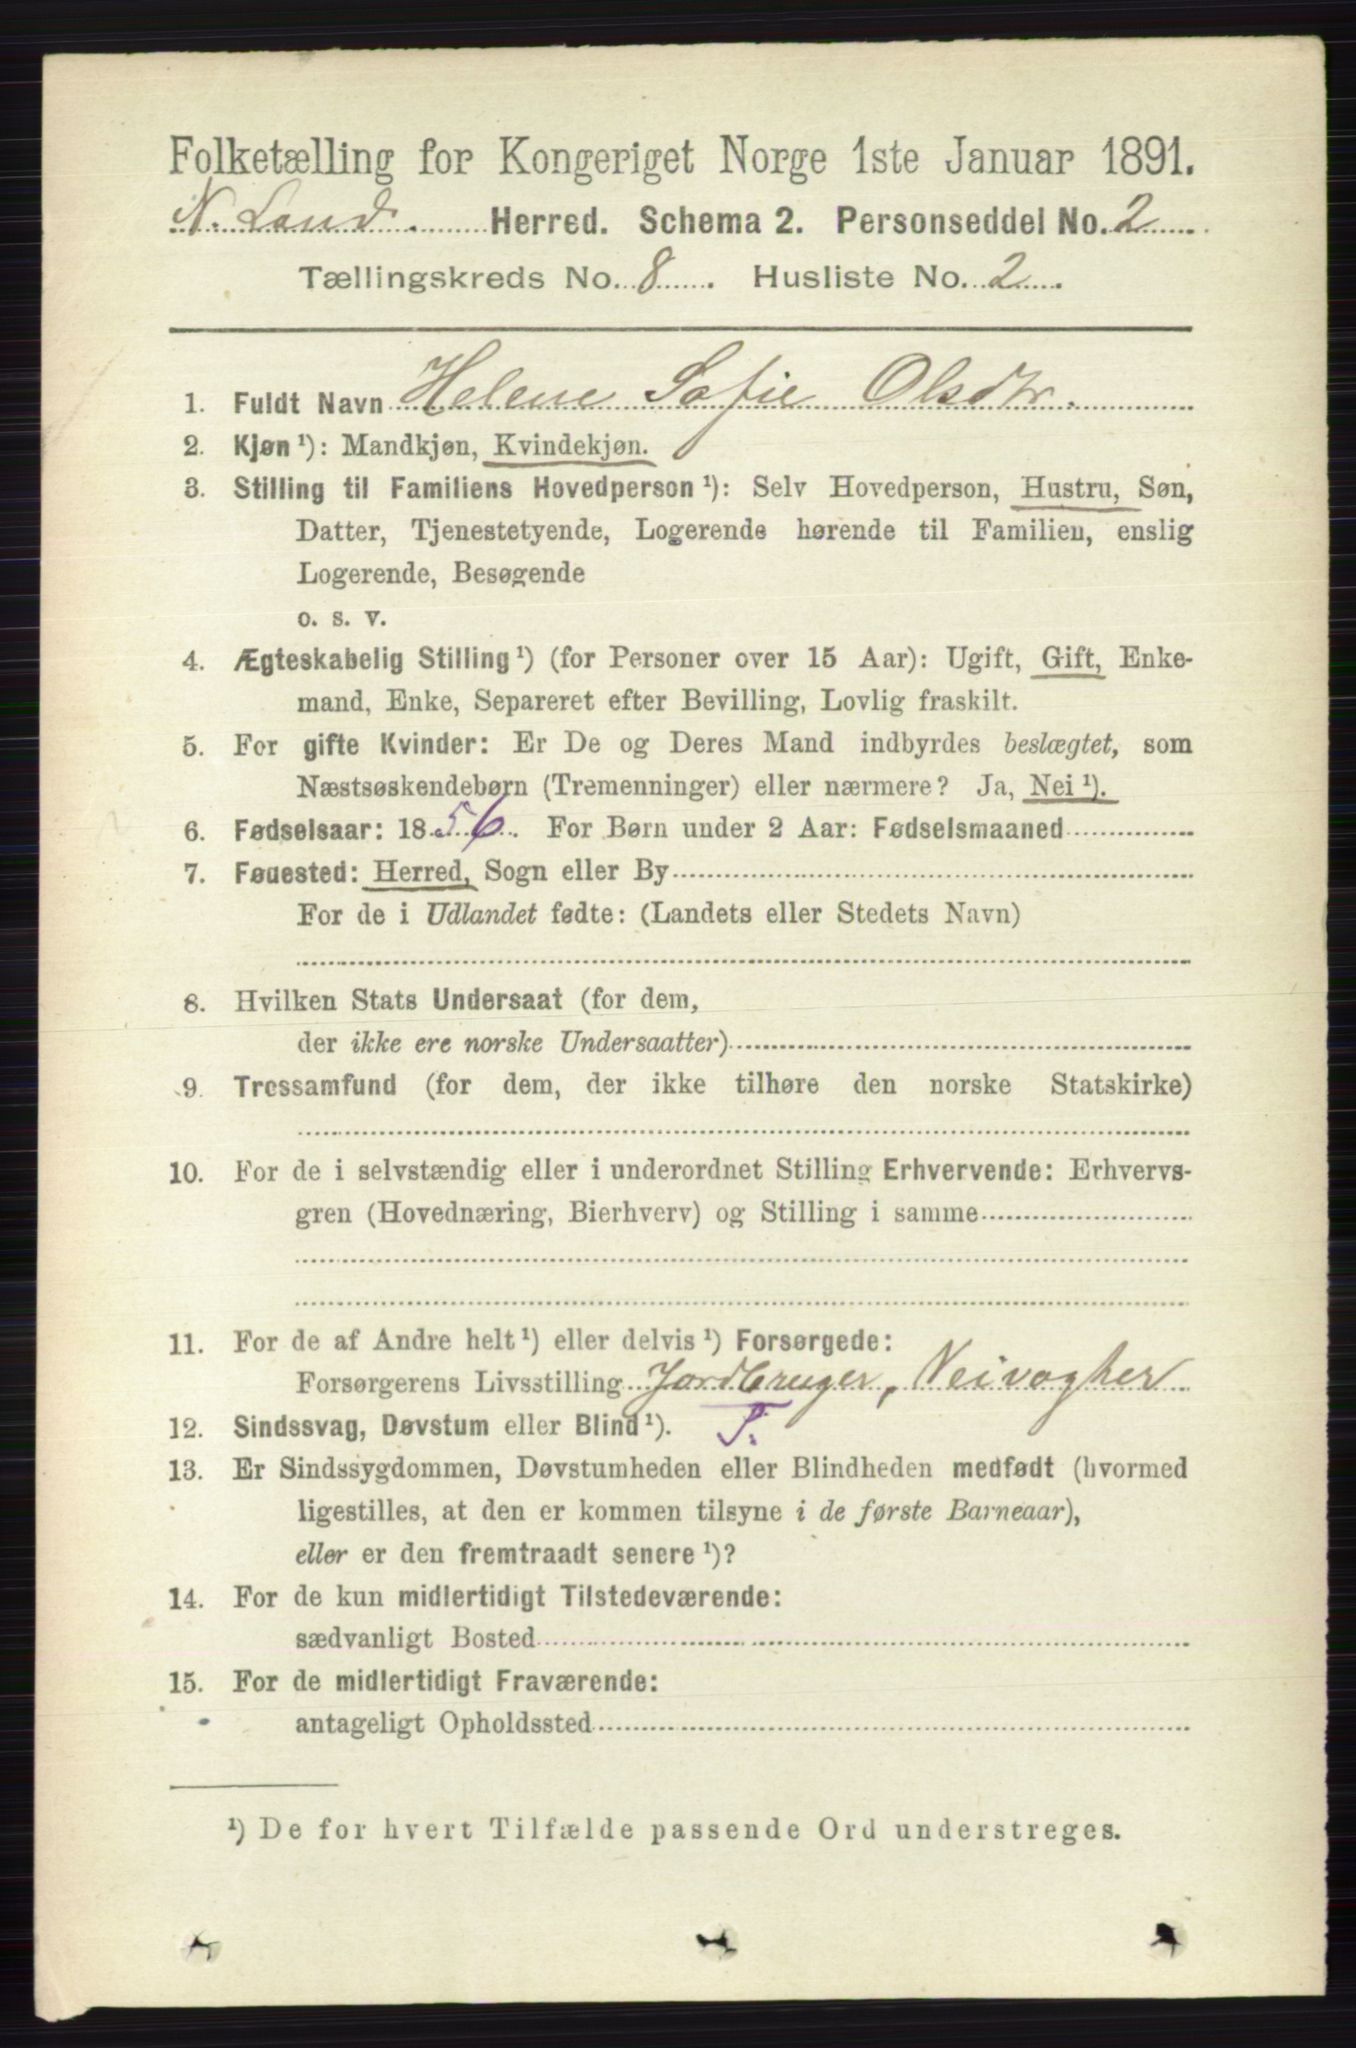 Folketælling for Kongeriget Norge 1ste Januar 1891.
N. Land. Herred. Schema 2. Personseddel No. 2
Tællingskreds No. 8 . Husliste No. 2 .
1. Fuldt Navn Helene Sofie Olsdtr.
2. Kjøn ¹): Mandkjøn, Kvindekjøn.
3. Stilling til Familiens Hovedperson ¹): Selv Hovedperson, Hustru, Søn,
Datter, Tjenestetyende, Logerende hørende til Familien, enslig
Logerende, Besøgende
o. s. v.
4. Ægteskabelig Stilling ¹) (for Personer over 15 Aar): Ugift, Gift, Enke-
mand, Enke, Separeret efter Bevilling, Lovlig fraskilt.
5. For gifte Kvinder: Er De og Deres Mand indbyrdes beslægtet, som
Næstsøskendebørn (Tremenninger) eller nærmere? Ja, Nei ¹).
6. Fødselsaar: 1856. For Børn under 2 Aar: Fødselsmaaned
7. Fødested: Herred, Sogn eller By
For de i Udlandet fødte: (Landets eller Stedets Navn)
8. Hvilken Stats Undersaat (for dem,
der ikke ere norske Undersaatter)
9. Trossamfund (for dem, der ikke tilhøre den norske Statskirke)
10. For de i selvstændig eller i underordnet Stilling Erhvervende: Erhvervs-
gren (Hovednæring, Bierhverv) og Stilling i samme
11. For de af Andre helt ¹) eller delvis ¹) Forsørgede:
Forsørgerens Livsstilling Jordbruger, Veivogter
12. Sindssvag, Døvstum eller Blind ¹). S.
13. Er Sindssygdommen, Døvstumheden eller Blindheden medfødt (hvormed
ligestilles, at den er kommen tilsyne i de første Barneaar),
eller er den fremtraadt senere ¹)?
14. For de kun midlertidigt Tilstedeværende:
sædvanligt Bosted
15. For de midlertidigt Fraværende:
antageligt Opholdssted
¹) De for hvert Tilfælde passende Ord understreges.